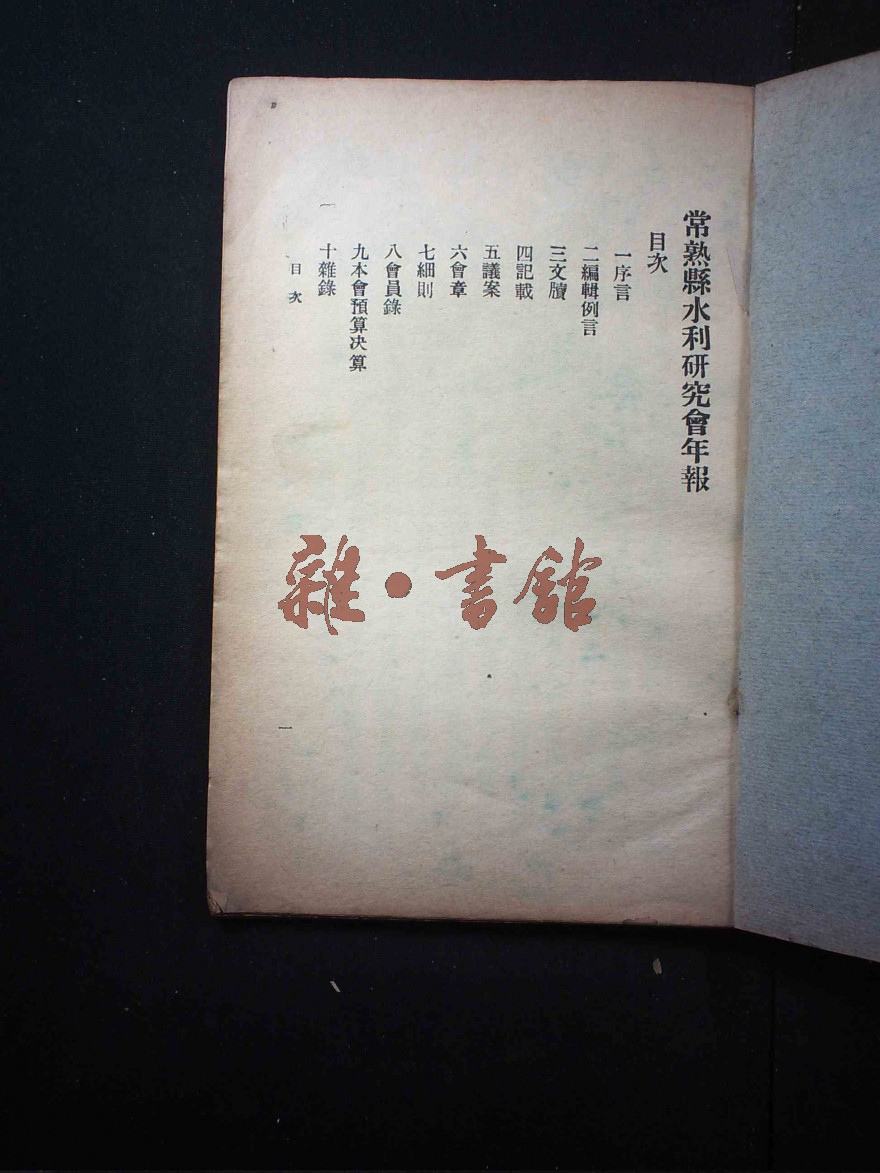 常熟縣水利研究會年報
目次
一序言
二編輯例言
三文牘
四記載
五議案
六會章
七細則
八會員錄
九本會預算決算
十雜錄
目次
一
雜·書館